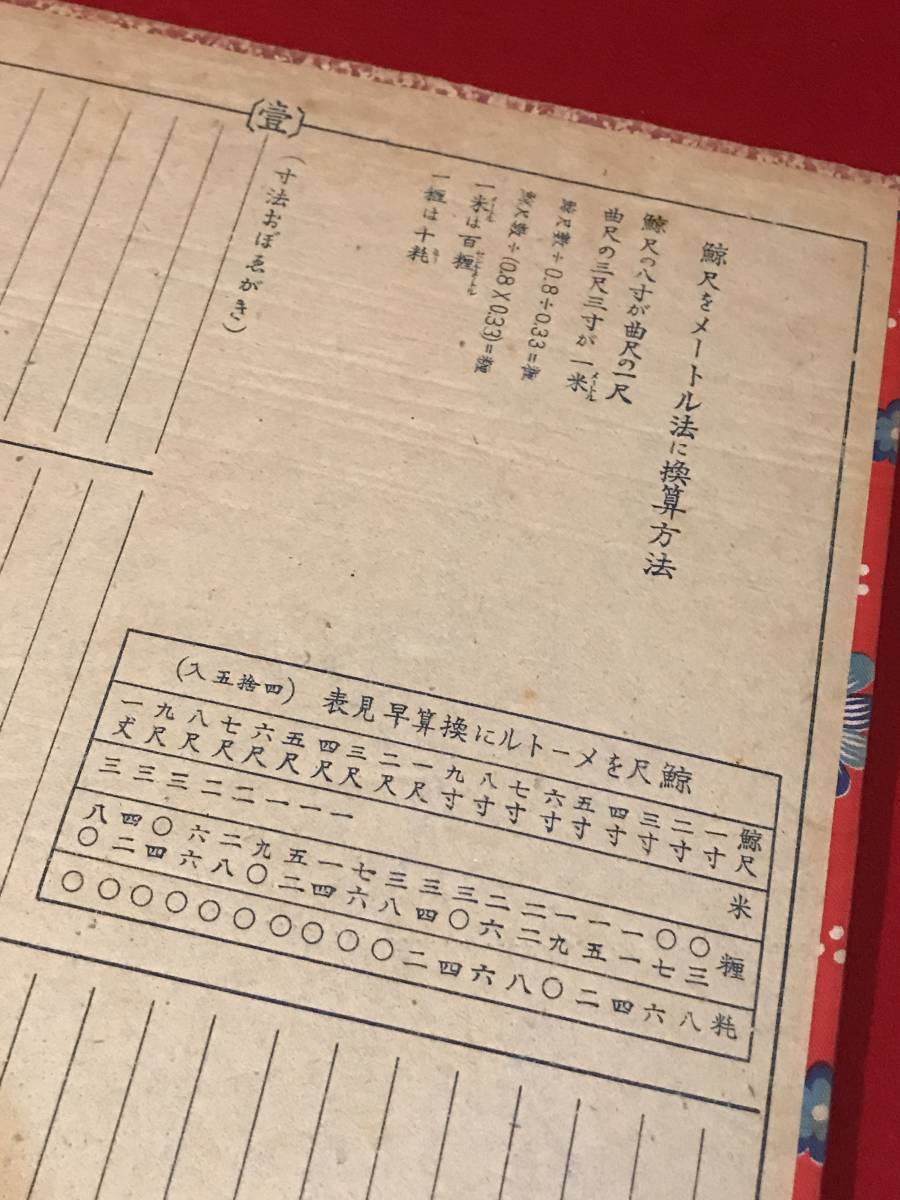 鯨尺をメートル法に換算方法
鯨尺の八寸が曲尺の一尺
曲尺の三尺三寸が一米
メートル
÷0.8÷0.33=
÷(0.8×0.33)=
一米は百糎
メートル
一糎は十粍
(寸法おぼゑがき)
壹
鯨尺をメートルに換算早見表(四捨五入)
鯨尺 米 糎 粍
一寸 〇三 八
二寸 〇七 六
三寸 一一 四
四寸 一五 二
五寸 一九 〇
六寸 二二 八
七寸 二六 六
八寸 三〇 四
九寸 三四 二
一尺 三八 〇
二尺 七六 〇
三尺 一 一四 〇
四尺 一 五二 〇
五尺 一 九〇 〇
六尺 二 二八 〇
七尺 二 六六 〇
八尺 三 〇四 〇
九尺 三 四二 〇
一丈 三 八〇 〇